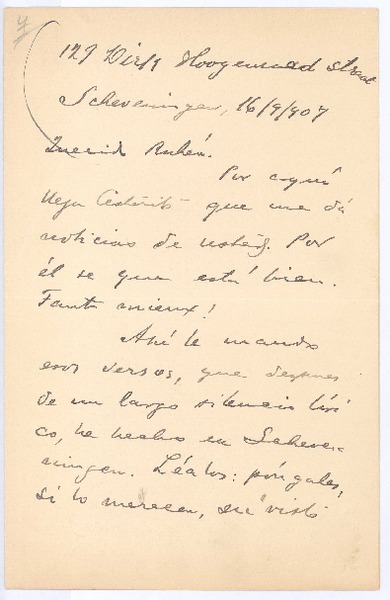 4
127 Dirk Hoogenraad straat
Scheveningen, 16/9/907
Querido Rubén.
Por aquí
llega que me dá
noticias de usted. Por
él se que está bien.
Tant mieux!
Ahí le mando
esos versos, que despues
de un largo silencio líri
co, he hecho en Scheve-
ningen. Léalos: póngales,
si lo merecen, su visto